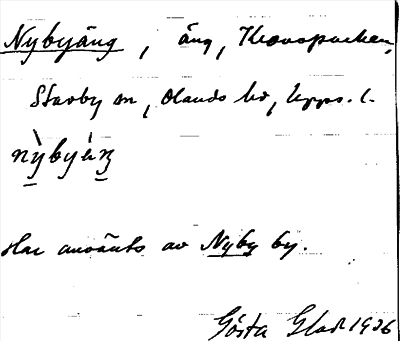 Nybyäng, äng, Kronoparken,
Stavby sn, Olands hd, Upps. l.
nỳbyáŋ
Har använts av Nyby by.
Gösta 1926